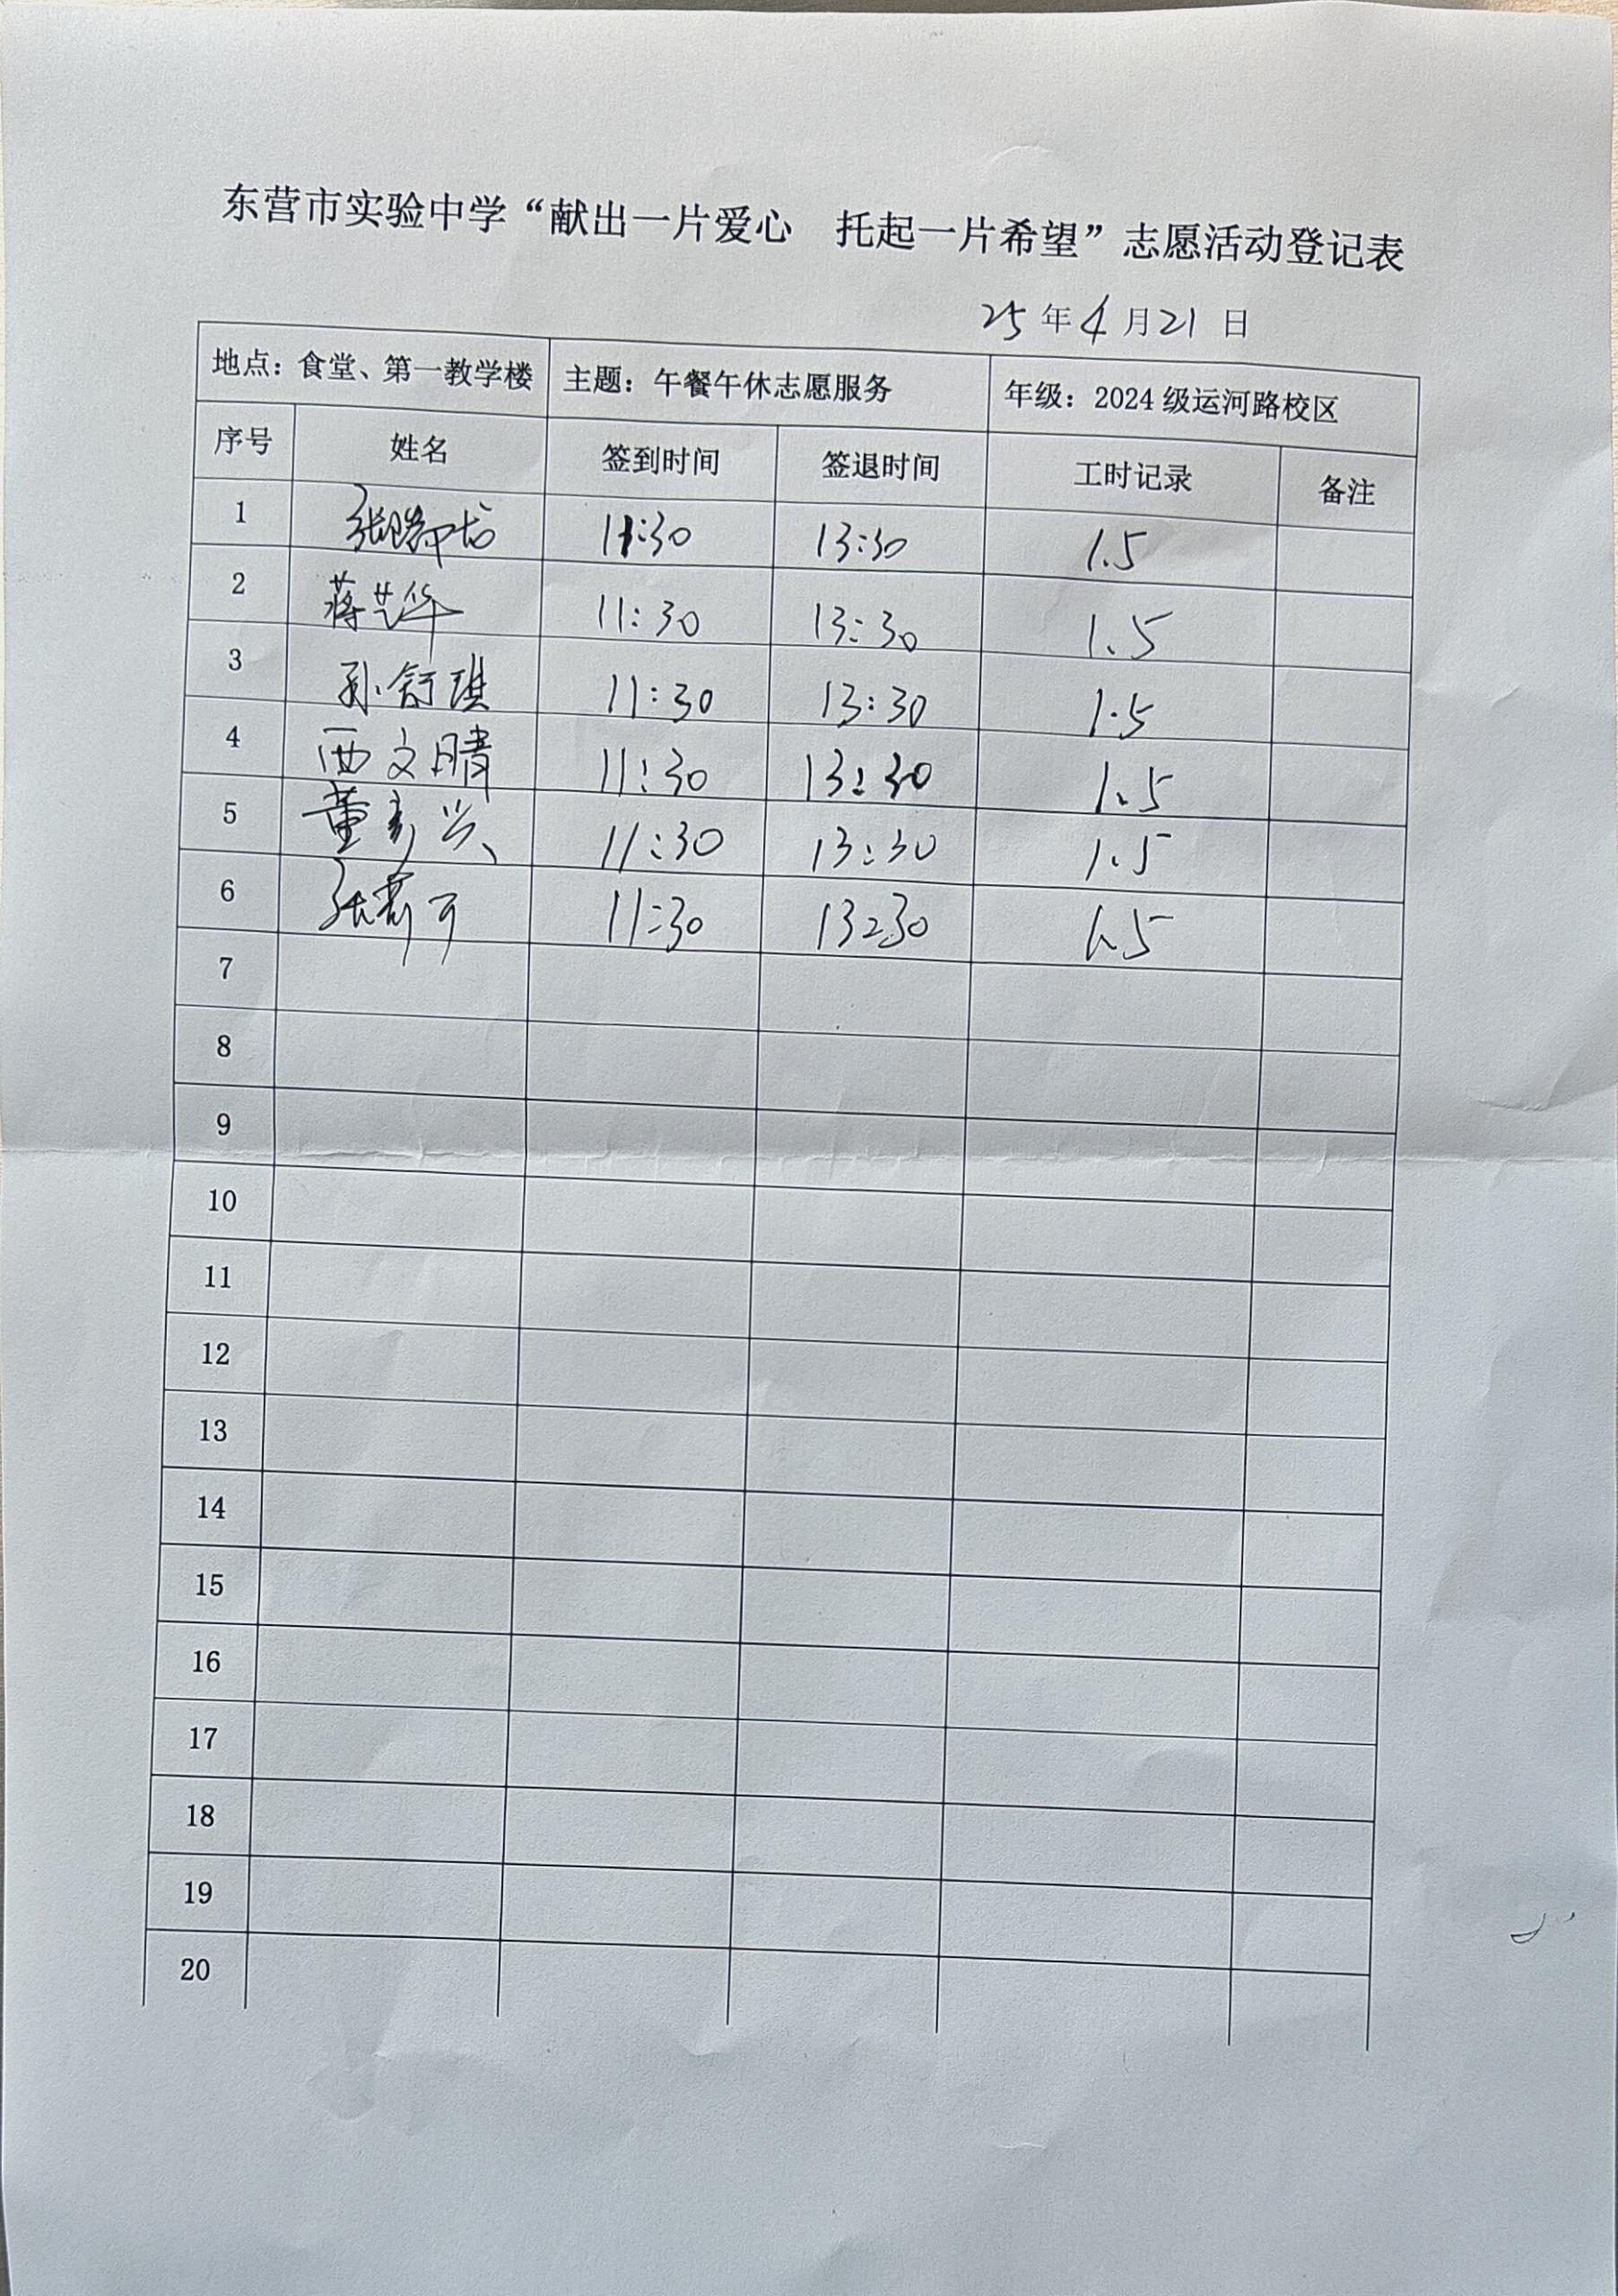 东营市实验中学“献出一片爱心 托起一片希望”志愿活动登记表
25年4月21日
地点：食堂、第一教学楼 主题：午餐午休志愿服务 年级：2024级运河路校区
序号 姓名 签到时间 签退时间 工时记录 备注
1 11:30 13:30 1.5
2 蒋芝华 11:30 13:30 1.5
3 孙舒琪 11:30 13:30 1.5
4 西文晴 11:30 13:30 1.5
5 董彦兴 11:30 13:30 1.5
6 11:30 13:30 1.5
7
8
9
10
11
12
13
14
15
16
17
18
19
20